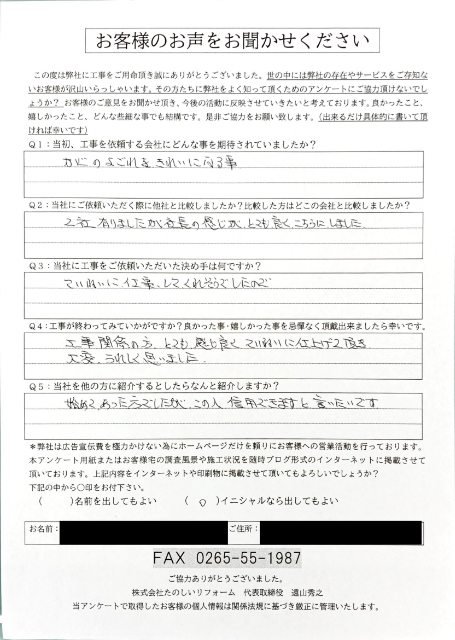 お客様のお声をお聞かせください
この度は弊社に工事をご用命頂き誠にありがとうございました。世の中には弊社の存在やサービスをご存知な
いお客様が沢山いらっしゃいます。その方たちに弊社をよく知って頂くためのアンケートにご協力頂けないでし
ょうか？ お客様のご意見をお聞かせ頂き、今後の活動に反映させていきたいと考えております。良かったこと、
嬉しかったこと、どんな些細な事でも結構です。是非ご協力をお願い致します。（出来るだけ具体的に書いて頂
ければ幸いです）
Q１：当初、工事を依頼する会社にどんな事を期待されていましたか？
かべのよごれを きれいになる事
Q２：当社にご依頼いただく際に他社と比較しましたか？比較した方はどこの会社と比較しましたか？
2社、有りましたが 社長の感じが、とても良く、こちらにしました
Q３：当社に工事をご依頼いただいた決め手は何ですか？
ていねいに仕事、してくれそうでしたので
Q４：工事が終わってみていかがですか？良かった事・嬉しかった事を忌憚なく頂戴出来ましたら幸いです。
工事関係の方、とても、感じ良く ていねいに仕上げて頂き
大変、うれしく思いました。
Q５：当社を他の方に紹介するとしたらなんと紹介しますか？
始めて、あった方でしたが、この人 信用できますと言いたいです
＊弊社は広告宣伝費を極力かけない為にホームページだけを頼りにお客様への営業活動を行っております。
本アンケート用紙またはお客様宅の調査風景や施工状況を随時ブログ形式のインターネットに掲載させて
頂いております。上記内容をインターネットや印刷物に掲載させて頂いてもよろしいでしょうか？
下記の中から〇印をお付下さい。
（　　）名前を出してもよい　　（ 〇 ）イニシャルなら出してもよい
お名前：　ご住所：
FAX 0265-55-1987
ご協力ありがとうございました。
株式会社たのしいリフォーム　代表取締役　遠山秀之
当アンケートで取得したお客様の個人情報は関係法規に基づき厳正に管理いたします。